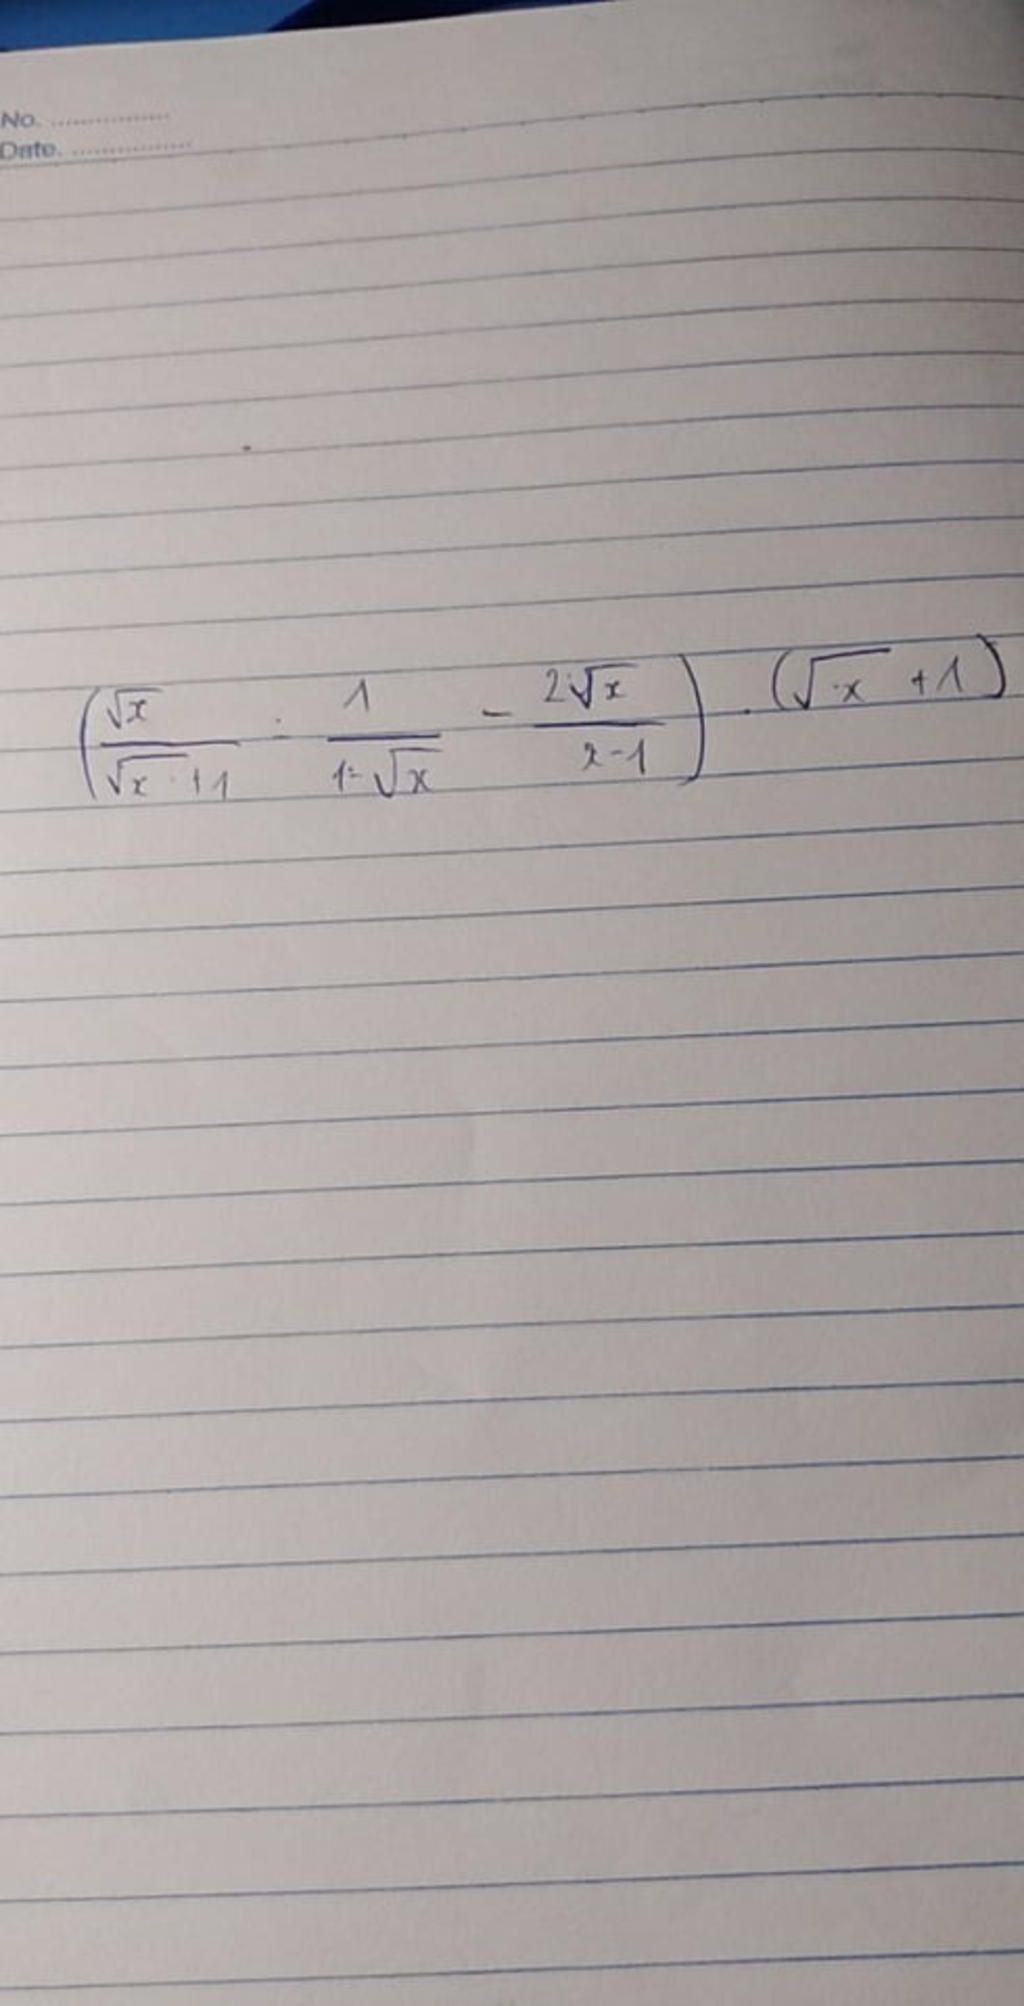 No. ................
Date. ................
(√x / (√x + 1) - 1 / (1 - √x) - 2√x / (x - 1)) . (√x + 1)